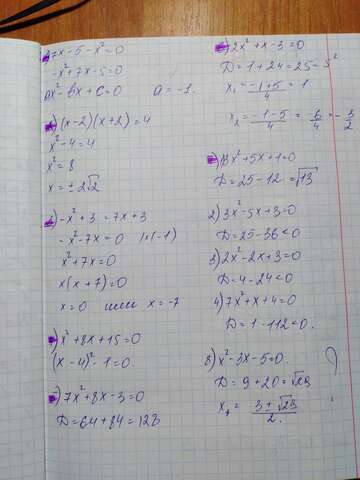 7x - 5 - x² = 0
-x² + 7x - 5 = 0
ax² - bx + c = 0    a = -1.
(x-2)(x+2) = 4
x² - 4 = 4
x² = 8
x = ± 2√2
-x² + 3 = 7x + 3
-x² - 7x = 0  |·(-1)
x² + 7x = 0
x(x+7) = 0
x = 0 или x = -7
x² + 8x + 15 = 0
(x-4)² - 1 = 0.
7x² + 8x - 3 = 0
D = 64 + 84 = 128
2x² + x - 3 = 0
D = 1 + 24 = 25 = 5²
x₁ = (-1+5)/4 = 1
x₂ = (-1-5)/4 = -6/4 = -3/2
3x² + 5x + 1 = 0
D = 25 - 12 = √13
2) 3x² - 5x + 3 = 0
D = 25 - 36 < 0
3) 2x² - 2x + 3 = 0
D = 4 - 24 < 0
4) 7x² + x + 4 = 0
D = 1 - 112 < 0.
8) x² - 3x - 5 = 0.
D = 9 + 20 = √29
x₁ = (3 ± √29)/2.